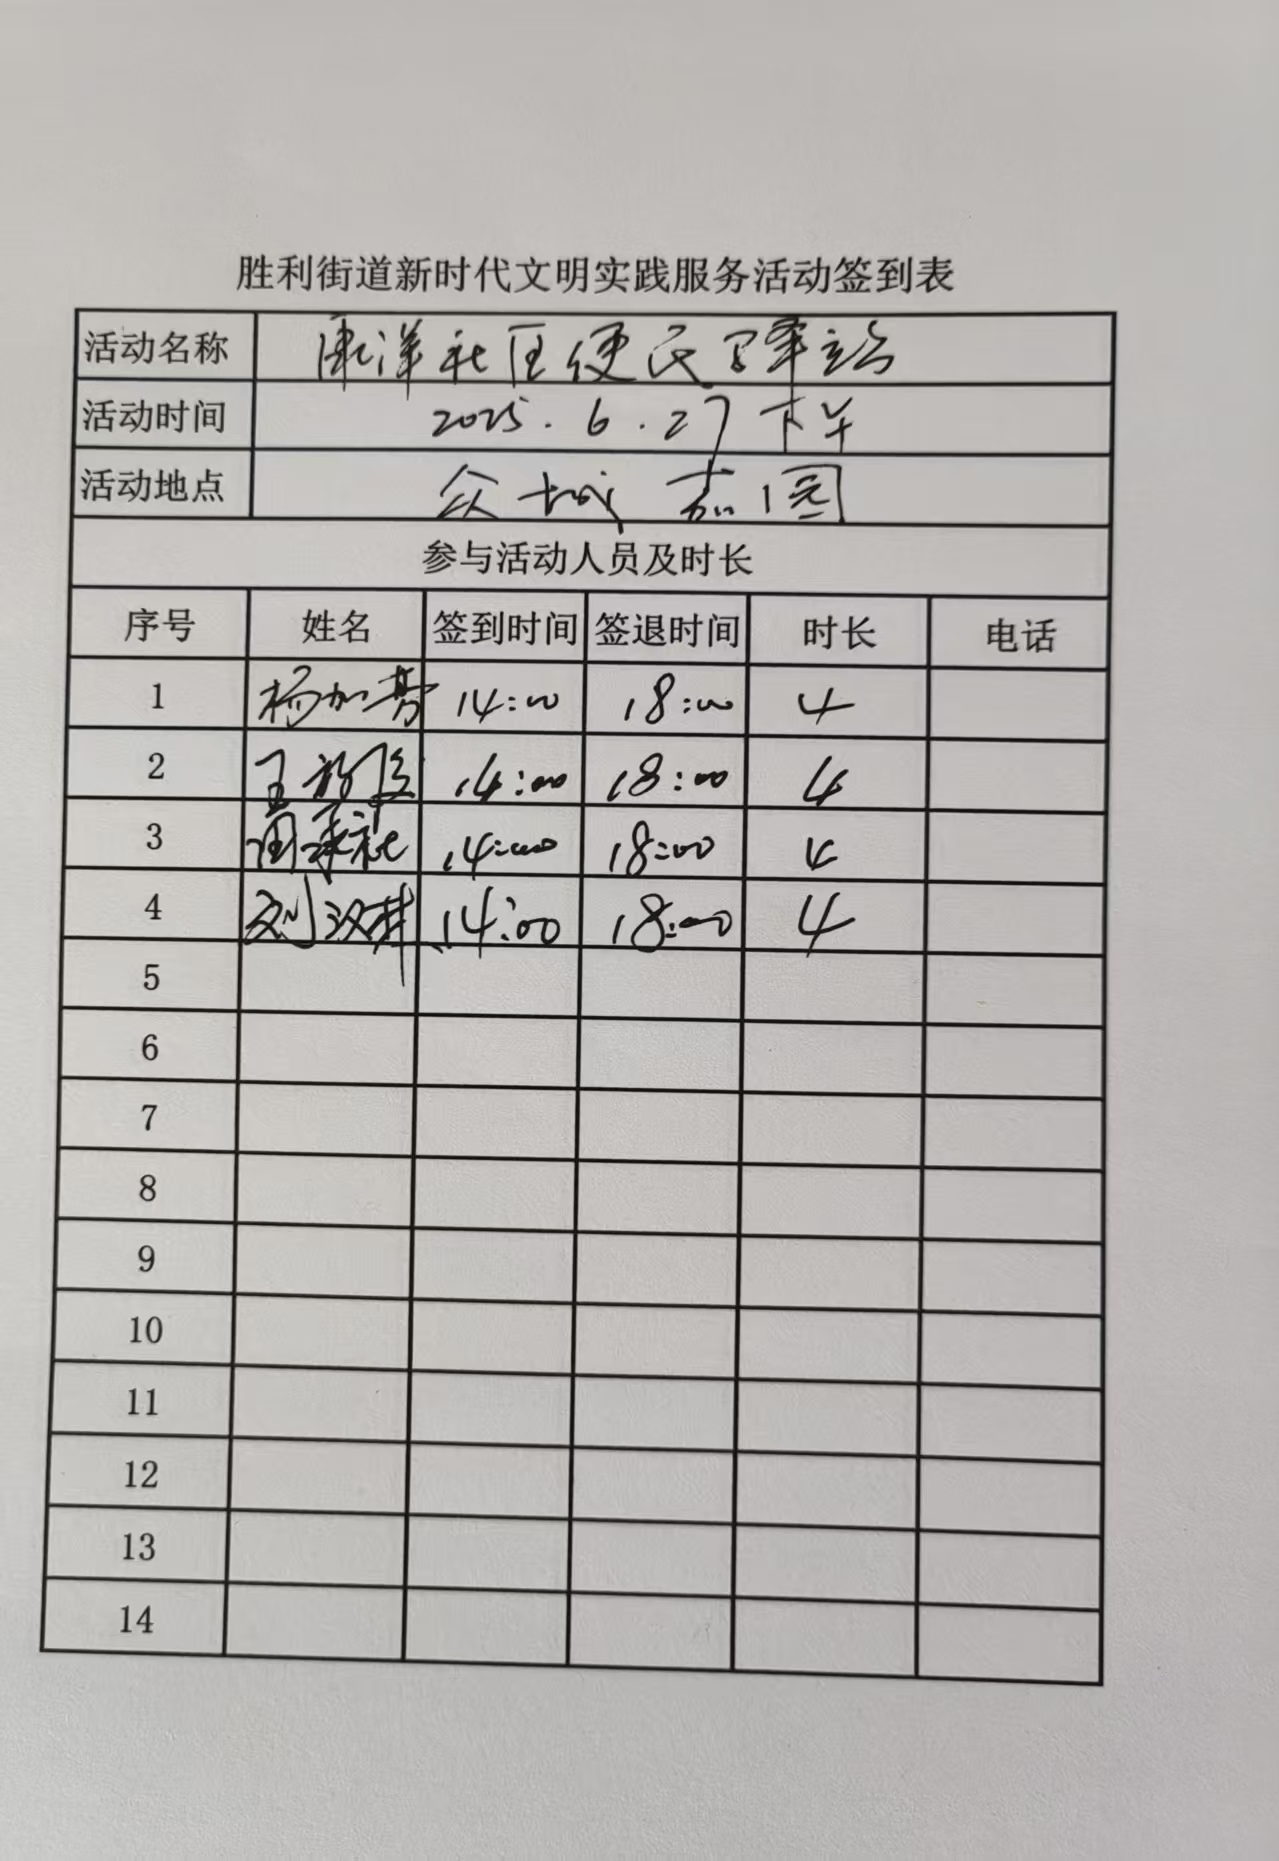 胜利街道新时代文明实践服务活动签到表
活动名称 康洋社区便民驿站
活动时间 2025.6.27下午
活动地点 众城嘉园
参与活动人员及时长
序号 姓名 签到时间 签退时间 时长 电话
1 杨加 14:00 18:00 4
2 王 14:00 18:00 4
3 周 14:00 18:00 4
4 刘汉井 14:00 18:00 4
5
6
7
8
9
10
11
12
13
14